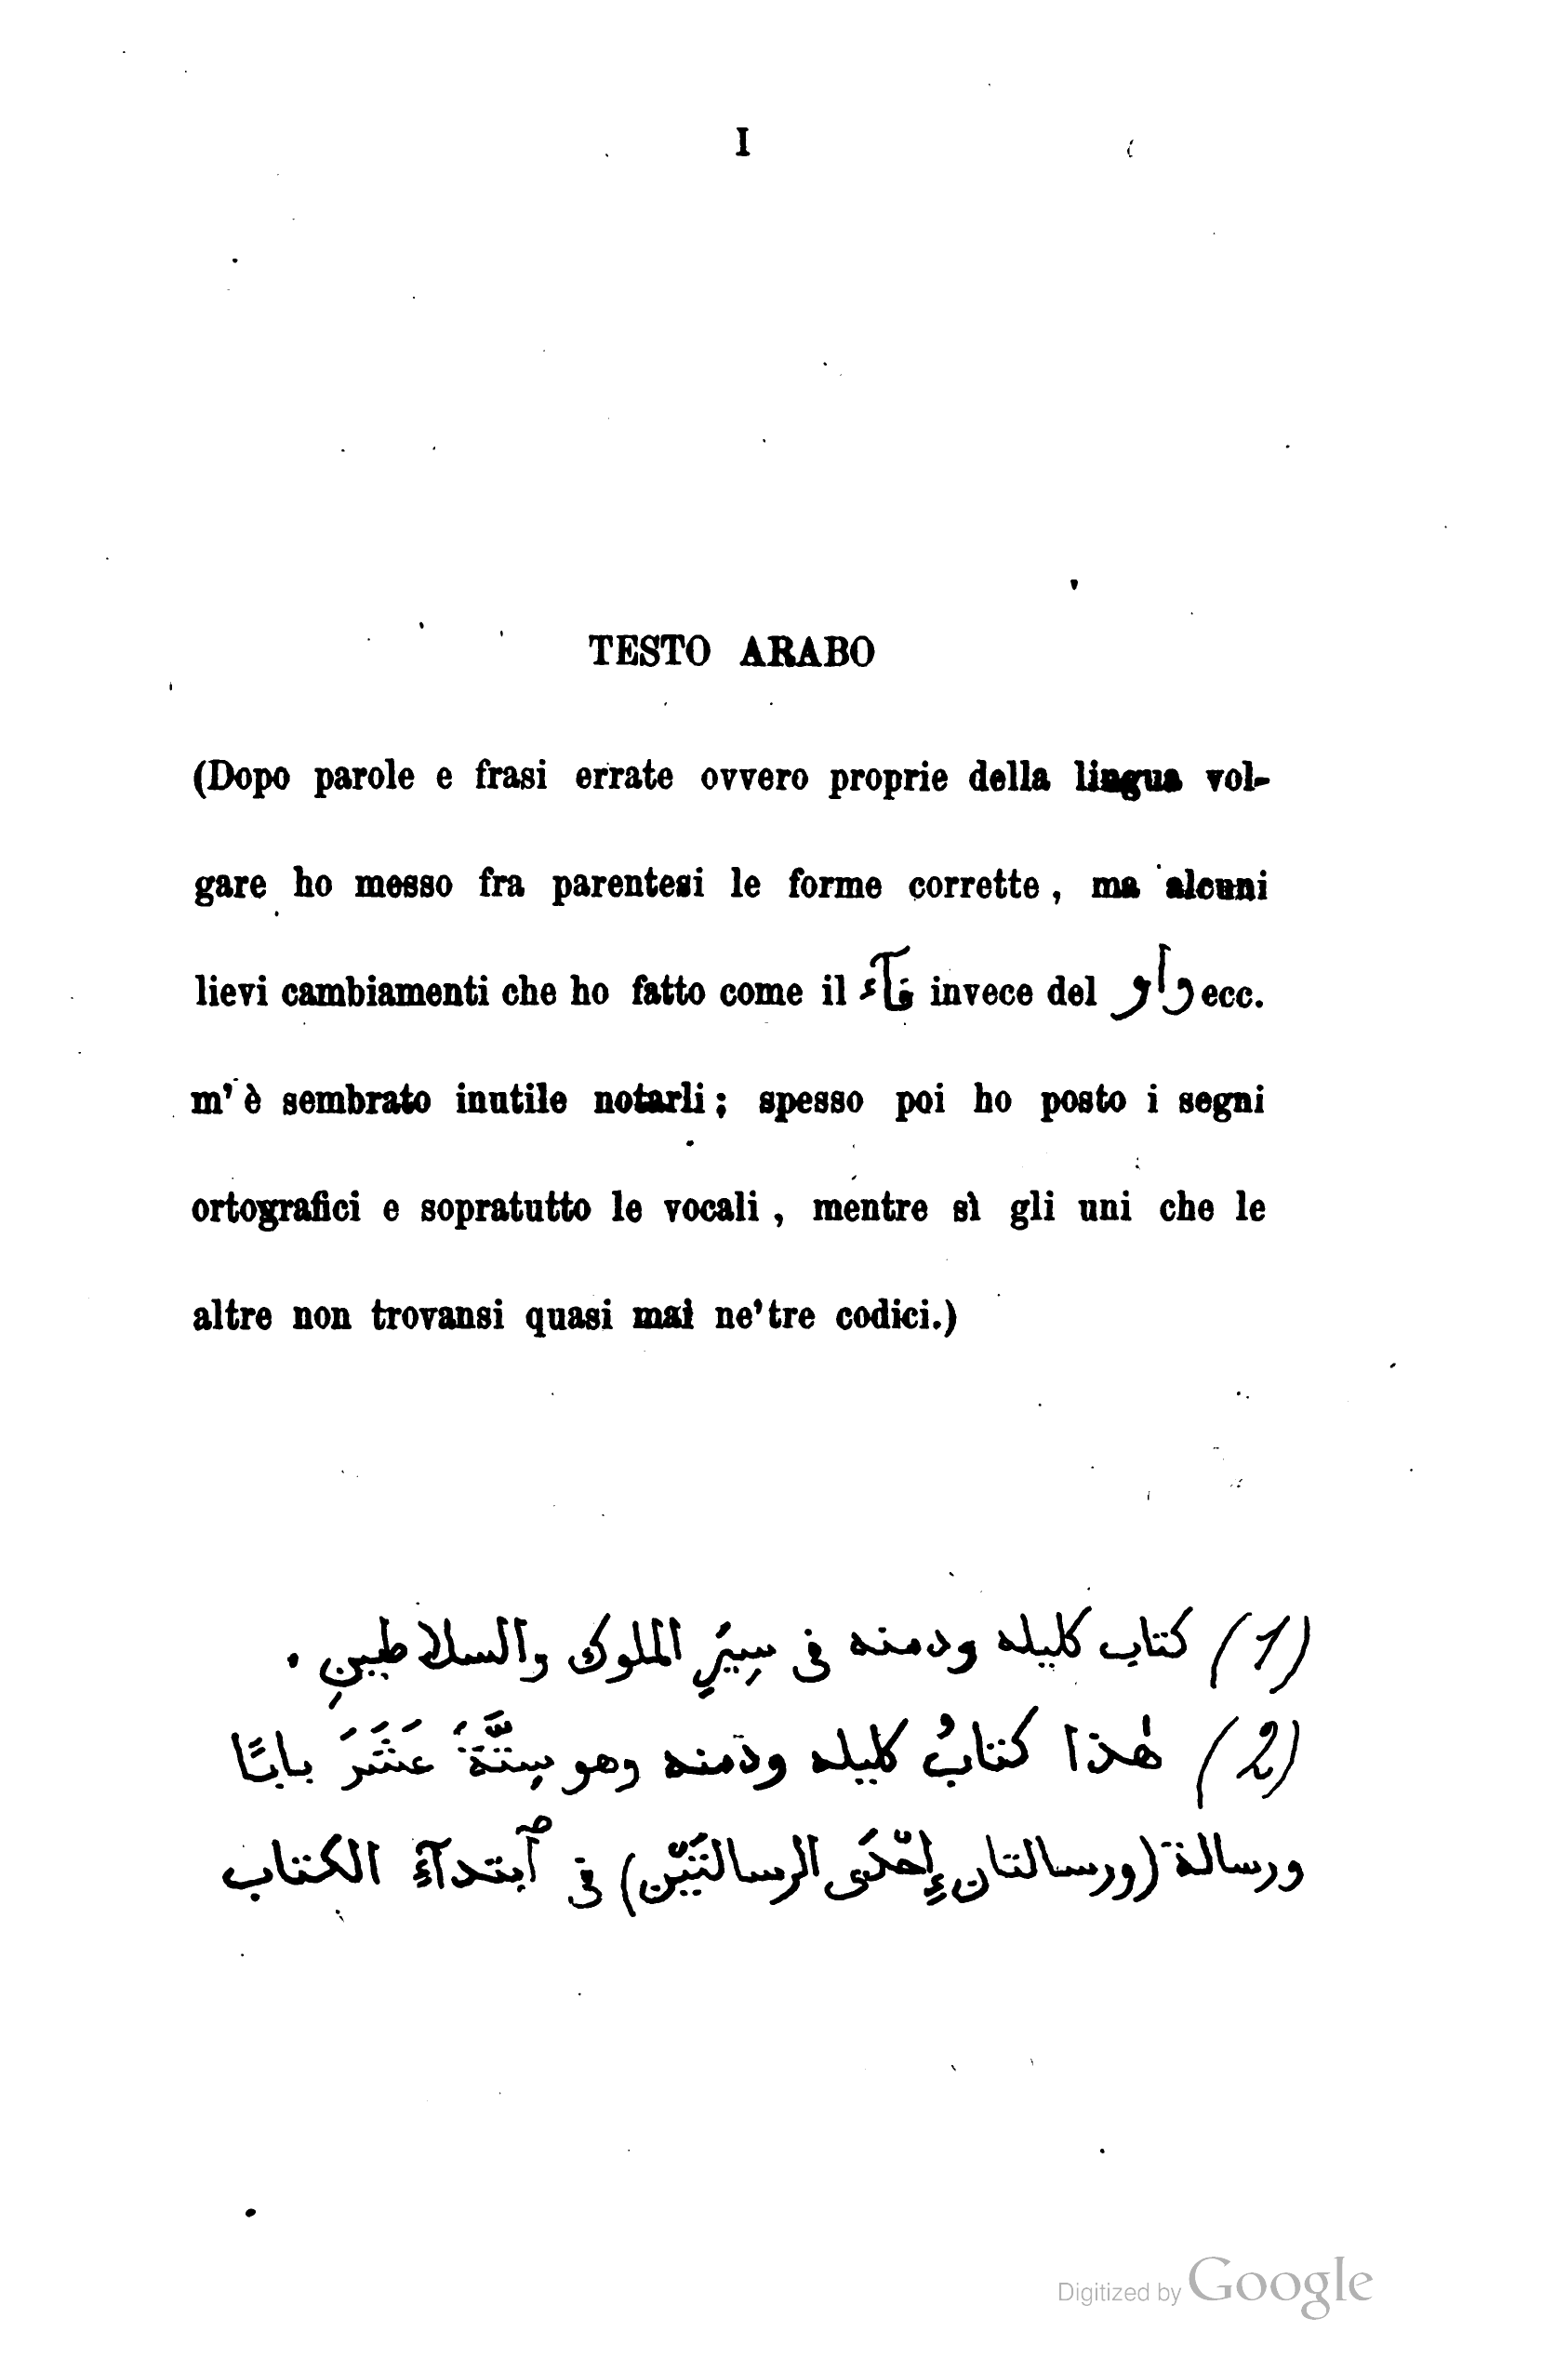 I
TESTO ARABO
(Dopo parole e frasi errate ovvero proprie della lingua vol-
gare ho messo fra parentesi le forme corrette, ma alcuni
lievi cambiamenti che ho fatto come il فآء invece del واو ecc.
m'è sembrato inutile notarli; spesso poi ho posto i segni
ortografici e sopratutto le vocali, mentre sì gli uni che le
altre non trovansi quasi mai ne'tre codici.)
(1) كتاب كليله ودمنه فى سِيَرِ الملوك والسلاطينِ .
(2) هٰذا كتابُ كليله ودمنه وهو سِتَّةَ عَشَرَ بابًا
ورسالة (ورسالتان إِحْدَى الرسالتَيْن) فى ٱبتدآءِ الكتاب
Digitized by Google